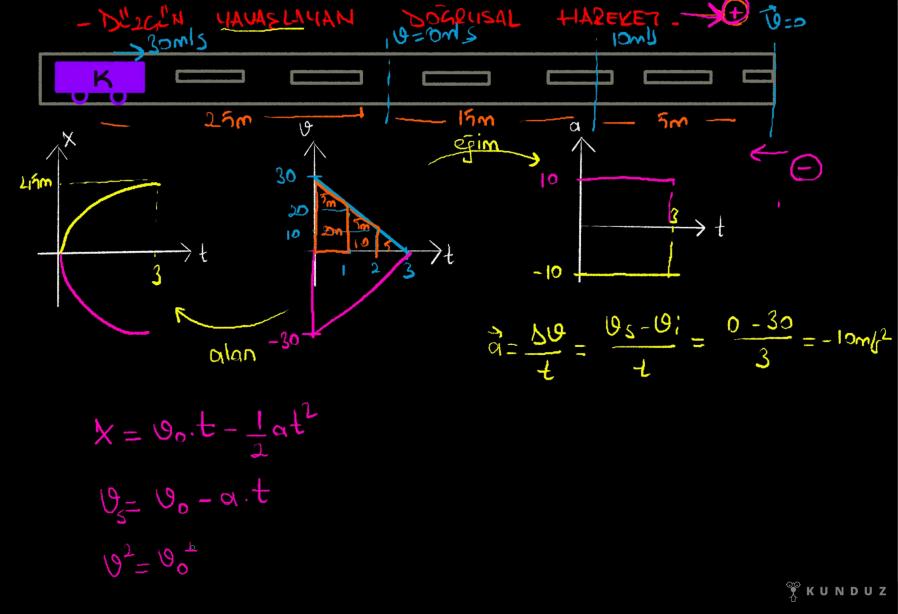 - DÜZGÜN YAVAŞLAYAN DOĞRUSAL HAREKET - +
30m/s
10m/s
v⃗=0
K
25m
15m
5m
x
45m
3
t
v
30
20
10
5m
20m
5m
10
5
1
2
3
t
-30
eğim
alan
a
10
3
t
-10
-
a⃗ = Δv/t = (vs - vi)/t = (0 - 30)/3 = -10m/s²
x = v₀.t - 1/2 at²
vs = v₀ - a.t
v² = v₀²
KUNDUZ